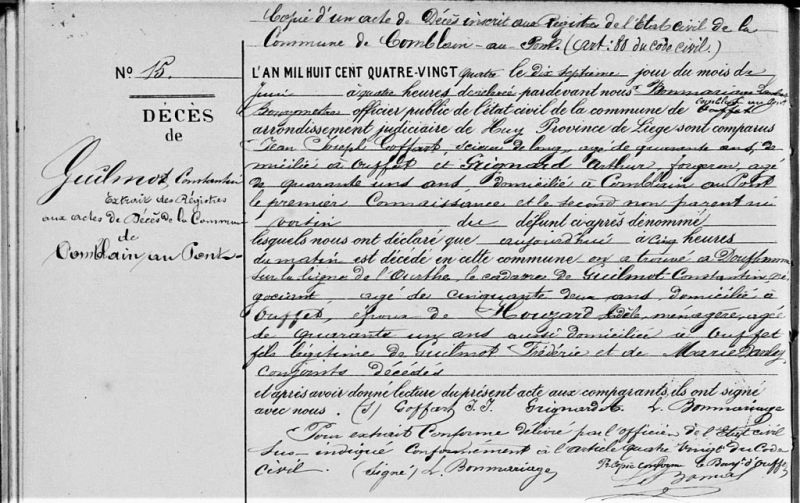 Copie d'un acte de Décès inscrit aux Registres de l'Etat civil de la
Commune de Comblain-au-Pont. (art: 80 du code civil.)
N° 15.
DÉCÈS
de
Guilmot, Constantin
Extrait des Régistres
aux actes de Décès de la Commune
de
Comblain au Pont
L'AN MIL HUIT CENT QUATRE-VINGT quatre le dix septième jour du mois de
juin à quatre heures de relevée pardevant nous Bonmariage
Bourgmestre officier public de l'état civil de la commune de Comblain au Pont
arrondissement judiciaire de Huy Province de Liège sont comparus
Jean Joseph Goffart, scieur de long, agé de quarante ans, do
micilié à Ouffet et Grignard Arthur, forgeron, agé
de quarante uns ans, domicilié à Comblain au Pont
le premier connaissance et le second non parent ni
voisin du défunt ci-après dénommé
lesquels nous ont déclaré que aujourd'hui à cinq heures
du matin est décédé en cette commune on a trouvé à
sur la ligne de l'Ourthe, le cadavre de Guilmot Constantin, né
gociant, agé de cinquante deux ans, domicilié à
Ouffet, époux de Houzard Adèle, ménagère, agée
de quarante un ans aussi domiciliée à Ouffet
fils légitime de Guilmot Frédéric et de Marie
conjoints décédés
et après avoir donné lecture du présent acte aux comparants, ils ont signé
avec nous. (S) Goffart J.J. Grignard A. L. Bonmariage
Pour extrait conforme délivré par l'officier de l'Etat civil
sus-indiqué conformément à l'article quatre vingt du Code
civil. (signé) L. Bonmariage
Pr copie conforme le Bourg. d'Ouffet